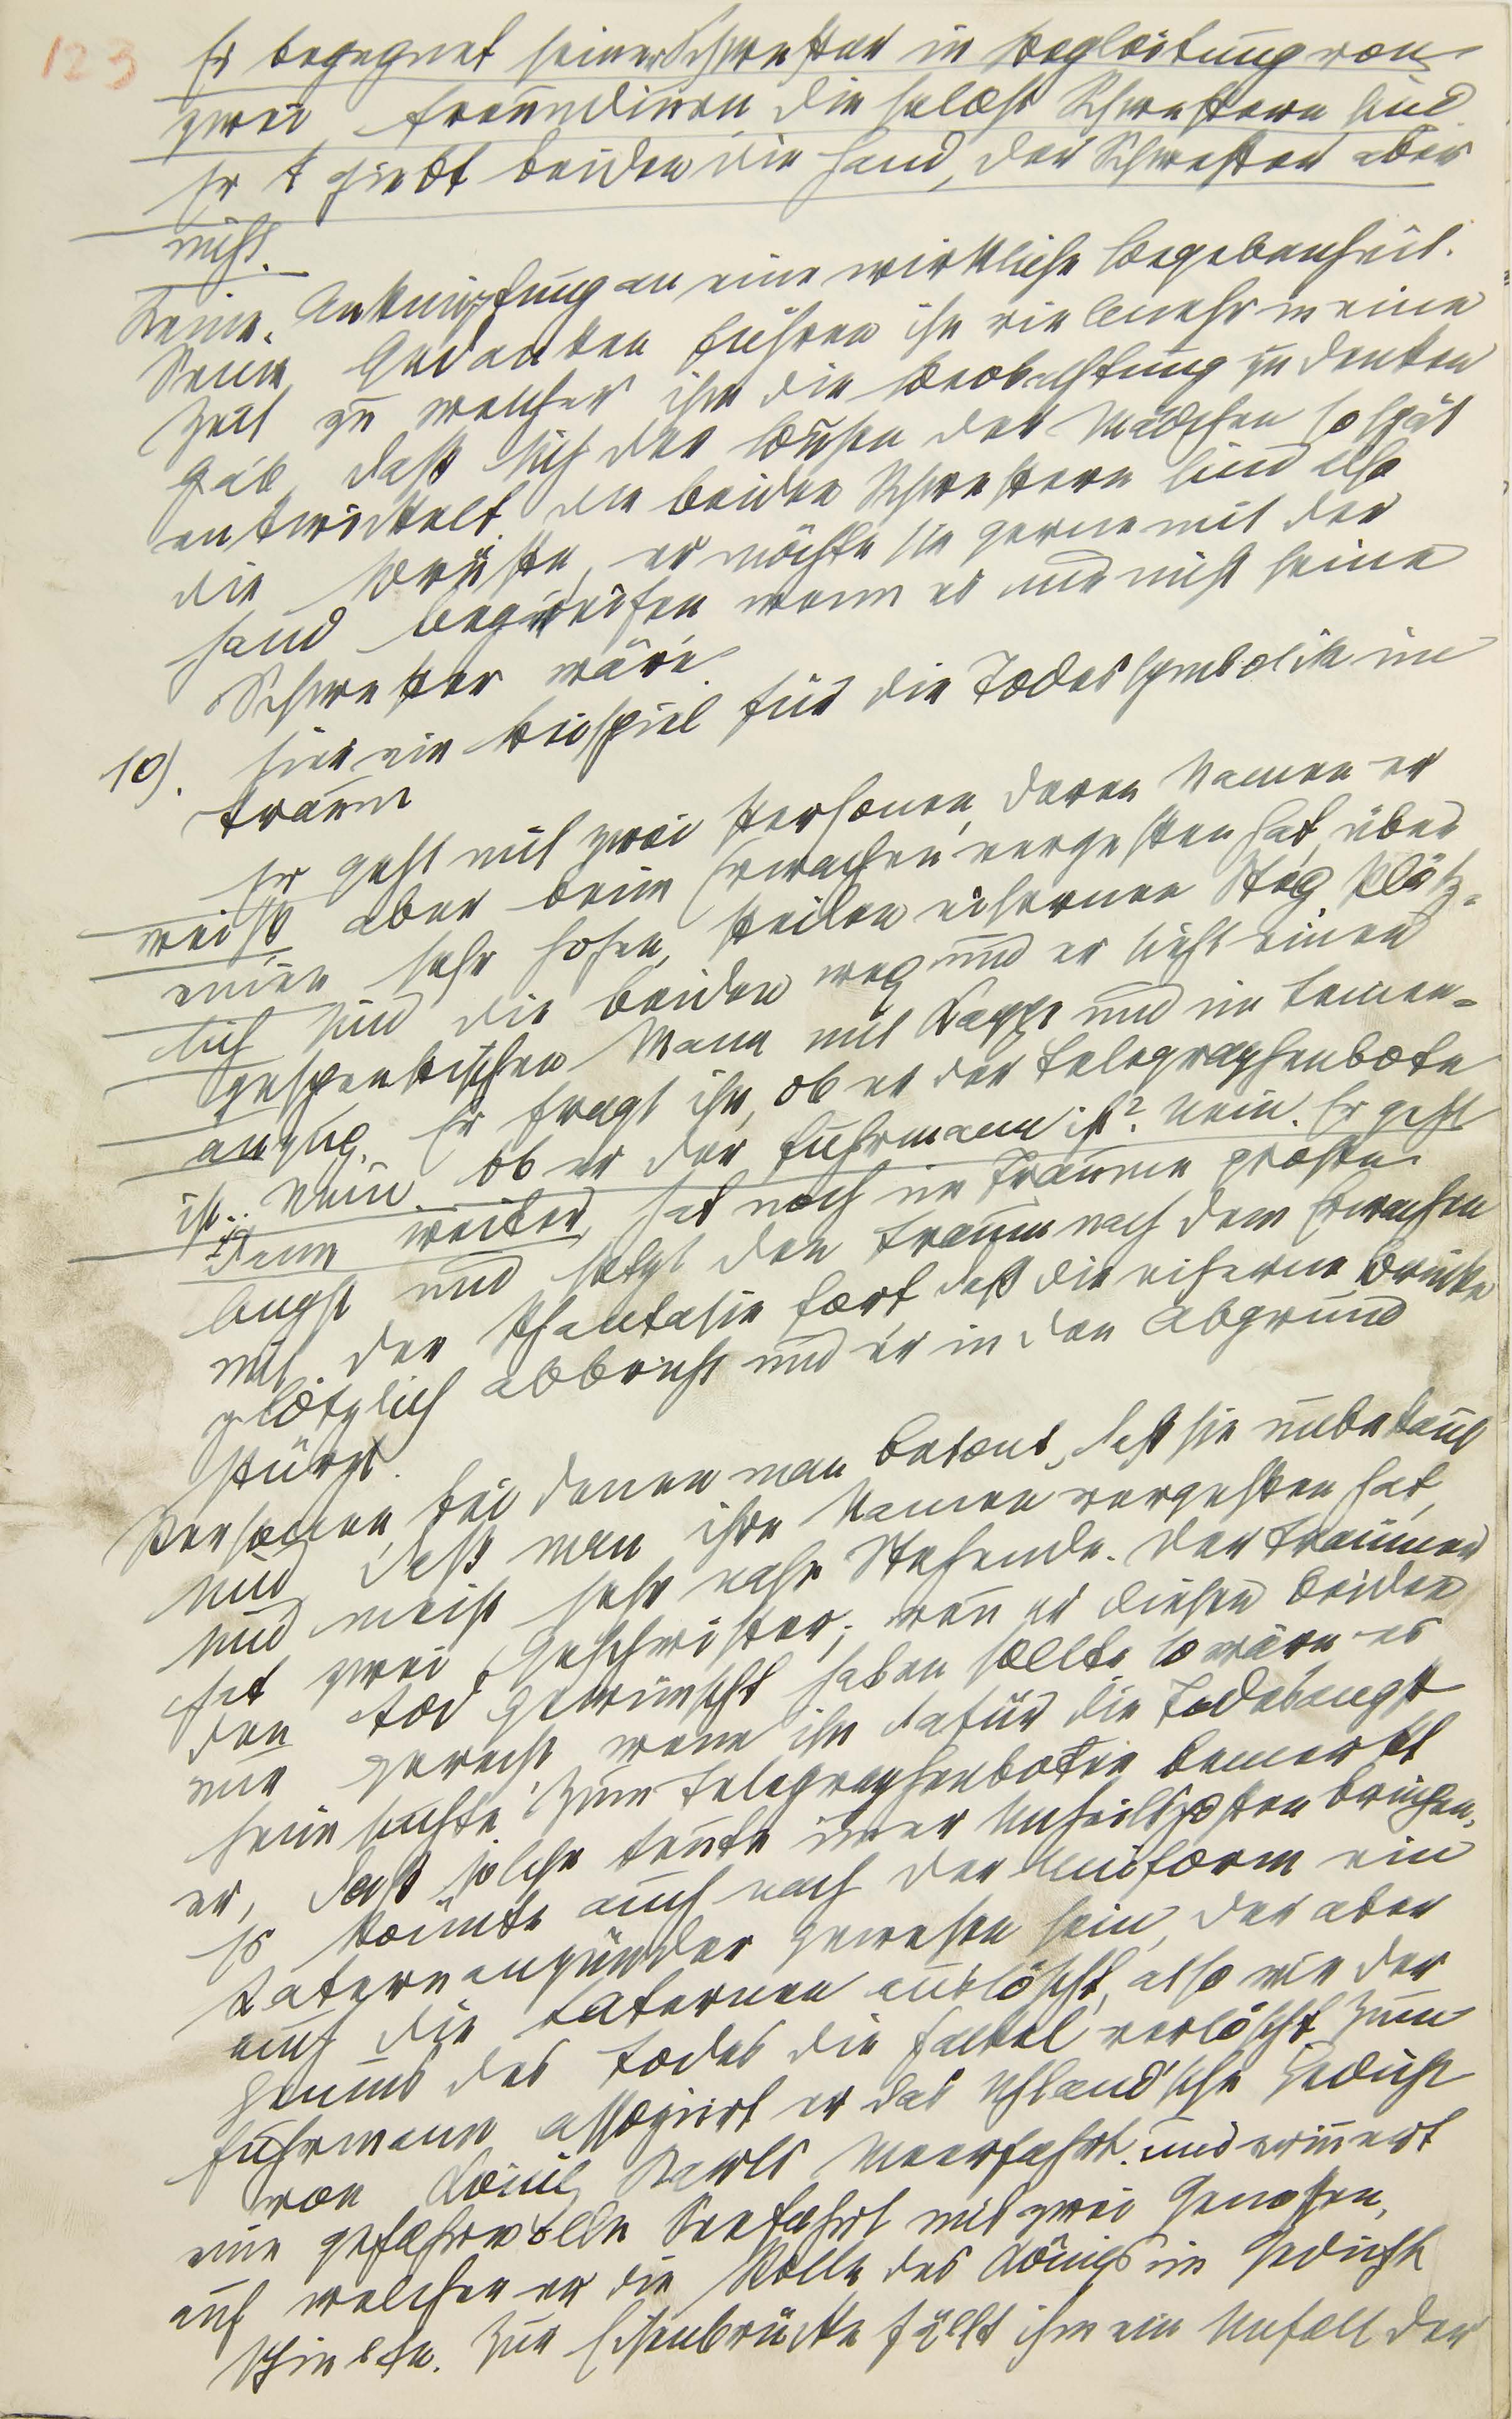 123
Er begegnet seiner Schwester in Begleitung von
zwei Freundinen die selbst Schwestern sind
Er giebt beiden die Hand, der Schwester aber
nicht.
Keine Anknüpfung an eine wirkliche Begebenheit.
Seine Gedanken führen ihn vielmehr in eine
Zeit zu welcher ihm die Beobachtung zu denken
gab, daß sich der Busen der Mädchen so spät
entwickelt. die beiden Schwestern sind also
die Brüste, er möchte sie gerne mit der
Hand begreifen wenn es nur nicht seine
Schwester wäre.
10). Hier ein Beispiel für die Todessymbolik im
Traum
Er geht mit zwei Personen, deren Namen er
weiß, aber beim Erwachen vergessen hat, über
einen sehr hohen, steilen eisernen Steg. Plötz-
lich sind die beiden weg und er sieht einen
gespenstischen Mann mit Kappe und im Leinen-
anzug. Er fragt ihn, ob er der Telegraphenbote
ist.. Nein. Ob er der Fuhrmann ist? Nein. Er geht
dann weiter, hat noch im Traume große
Angst und setzt den Traum nach dem Erwachen
mit der Phantasie fort, daß die eiserne Brücke
plötzlich abbricht und er in den Abgrund
stürzt.
Personen, bei denen man betont, daß sie unbekannt
sind, daß man ihre Namen vergessen hat,
sind meist sehr nahe Stehende. Der Träumer
hat zwei Geschwister; wenn er diesen beiden
den Tod gewünscht haben sollte so wäre es
nur gerecht, wenn ihn dafür die Todesangst
heimsuchte. Zum Telegraphenboten bemerkt
er, daß solche Leute immer Unheilsposten bringen.
Es könnte auch nach der Uniform ein
Laternanzünder gewesen sein, der aber
auch die Laternen auslöscht, also wie der
Genius des Todes die Fackel verlöscht. Zum
Fuhrmann assoziirt er das Uhland'sche Gedicht
von König Karls Meerfahrt. und erinnert
eine gefahrvolle Seefahrt mit zwei Genossen,
auf welcher er die Rolle des Königs im Gedicht
spielte. Zur Eisenbrücke fällt ihm ein Unfall der